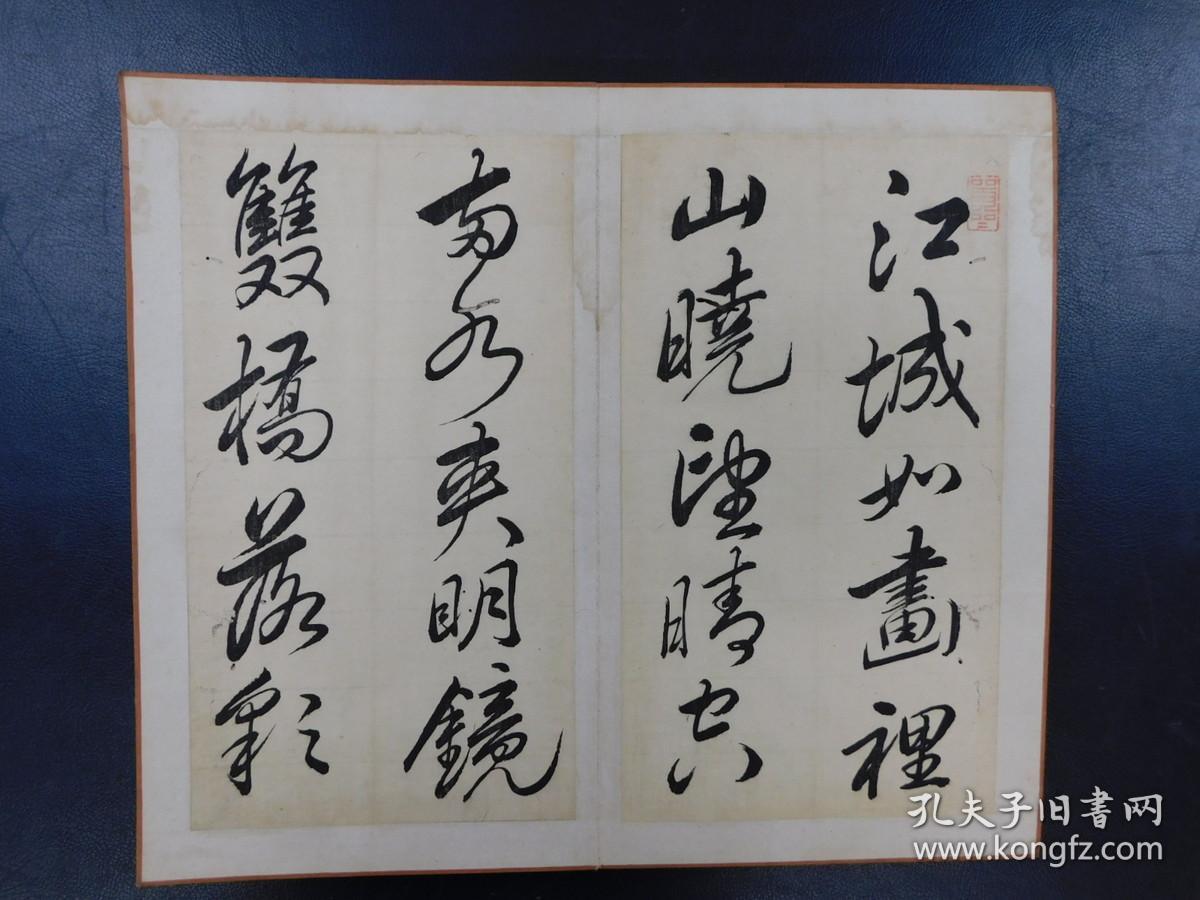 江城如畫裡
山曉望晴空
兩水夾明鏡
雙橋落彩
孔夫子旧书网
www.kongfz.com